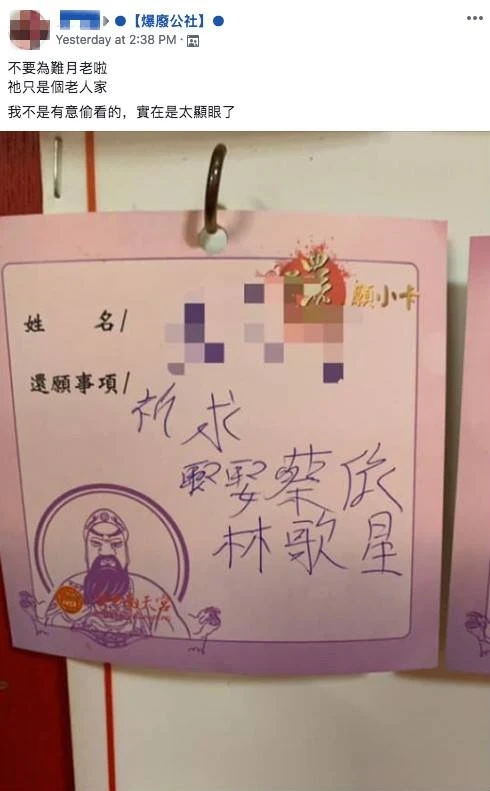 ●【爆廢公社】●
Yesterday at 2:38 PM ·
不要為難月老啦
祂只是個老人家
我不是有意偷看的，實在是太顯眼了
願小卡
姓 名/
還願事項/
祈求
娶蔡依
林歌星
南天宮